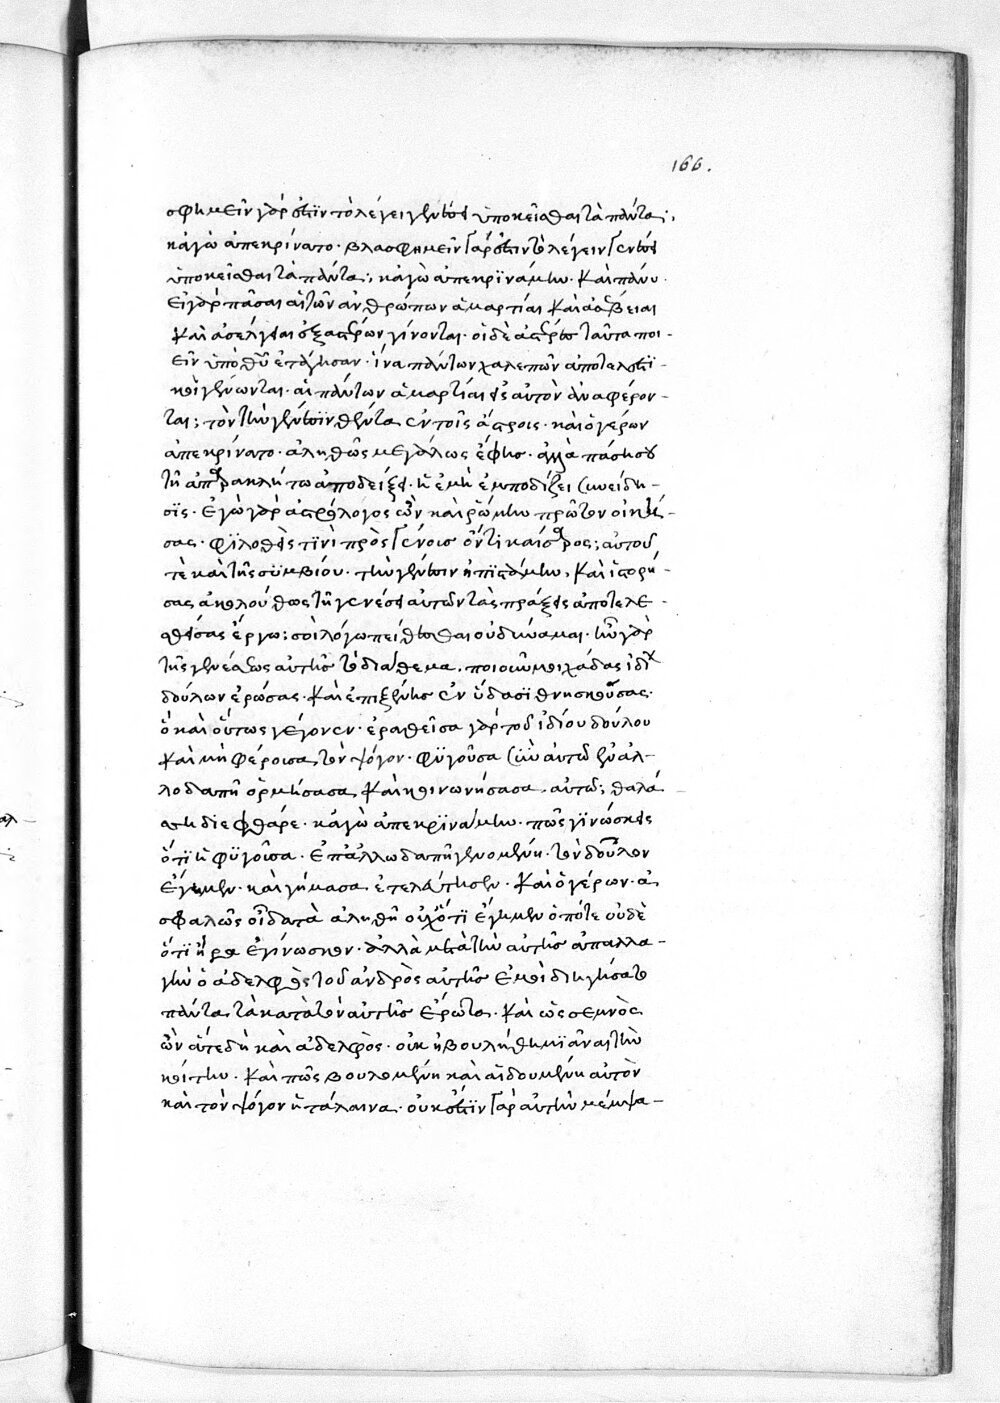 166.
σφημεῖν γάρ ἐστὶν τὸ λέγει γενέσει ὑποκεῖσθαι τὰ πάντα;
κἀγὼ ἀπεκρίνατο· βλασφημεῖν γάρ ἐστιν τὸ λέγειν γενέσει
ὑποκεῖσθαι τὰ πάντα; κἀγὼ ἀπεκρϊνάμην· καὶ πάνυ·
εἰ γὰρ πᾶσαι αἱ τῶν ἀνθρώπων ἁμαρτίαι καὶ ἀσέβειαι
καὶ ἀσέλγειαι ἐξ ἀστέρων γίνονται· οἱ δὲ ἀστέρες ταῦτα ποι-
εῖν ὑπὸ θεοῦ ἐτάγησαν· ἵνα πάντων χαλεπῶν ἀποτελεστϊ-
κοὶ γένωνται· αἱ πάντων ἁμαρτίαι εἰς αὐτὸν ἀναφέρον-
ται; τὸν τὴν γένεσϊν θέντα ἐν τοῖς ἄστροις· καὶ ὁ γέρων
ἀπεκρίνατο· ἀληθῶς μεγάλως ἔφης· ἀλλὰ πάσῃ σου
τῇ ἀπαρακλήτω ἀποδείξει· ἡ ἐμὴ ἐμποδίζει συνείδη-
σϊς· ἐγὼ γὰρ ἀστρόλογος ὢν καὶ ῥώμην πρῶτον οἰκή-
σας· φϊλοθεὶς τϊνὶ πρὸς γένοις ὄντι καίσαρος; αὐτοῦ
τὲ καὶ τῆς σϋμβίου· τὴν γένεσιν ἠπϊστάμην, καὶ ἱστορή-
σας ἀκολούθως τῇ γενέσει αὐτῶν τὰς πράξεις ἀποτελε-
σθείσας ἔργω; σοὶ λόγω πείθεσθαι οὐ δύναμαι· ἦν γὰρ
τῆς γενέσεως αὐτῆς τὸ διάθεμα, ποιοῦν μοιχάδας ἰδί
δούλων ἐρώσας· καὶ ἐπὶ ξένης ἐν ὕδασϊ θνησκούσας·
ὃ καὶ οὕτως γέγονεν· ἐρασθεῖσα γὰρ τοῦ ἰδίου δούλου
καὶ μὴ φέρουσα τὸν ψόγον· φϋγοῦσα σὺν αὐτῶ ἐν ἀλ-
λοδαπῇ ὁρμήσασα, καὶ κοινωνήσασα αὐτῶ; θαλά
σση διεφθάρε· κἀγὼ ἀπεκρϊνάμην· πῶς γϊνώσκεις
ὅτϊ ἡ φϋγοῦσα· ἐπ' ἀλλωδαπῇ γενομένη· τὸν δοῦλον
ἔγημεν· καὶ γήμασα ἐτελεύτησεν· καὶ ὁ γέρων· ἀ
σφαλῶς οἶδα τὰ ἀληθῆ οὐχ' ὅτϊ ἔγημεν ὁπότε οὐδὲ
ὅτϊ ἤρα ἐγίνωσκον· ἀλλὰ μετὰ τὴν αὐτῆς ἀπαλλα-
γὴν ὁ ἀδελφὸς τοῦ ἀνδρὸς αὐτῆς ἐμοὶ διηγήσατο
πάντα τὰ κατὰ τὸν αὐτῆς ἔρωτα· καὶ ὡς σεμνὸς
ὢν ἅτε δὴ καὶ ἀδελφὸς· οὐκ ἠβουλήθη μϊᾶναι τὴν
κοίτην· καὶ πῶς βουλομένη καὶ αἰδουμένη αὐτὸν
καὶ τὸν ψόγον ἡ τάλαινα· οὐκ ἐστϊν γὰρ αὐτὴν μέμψα-